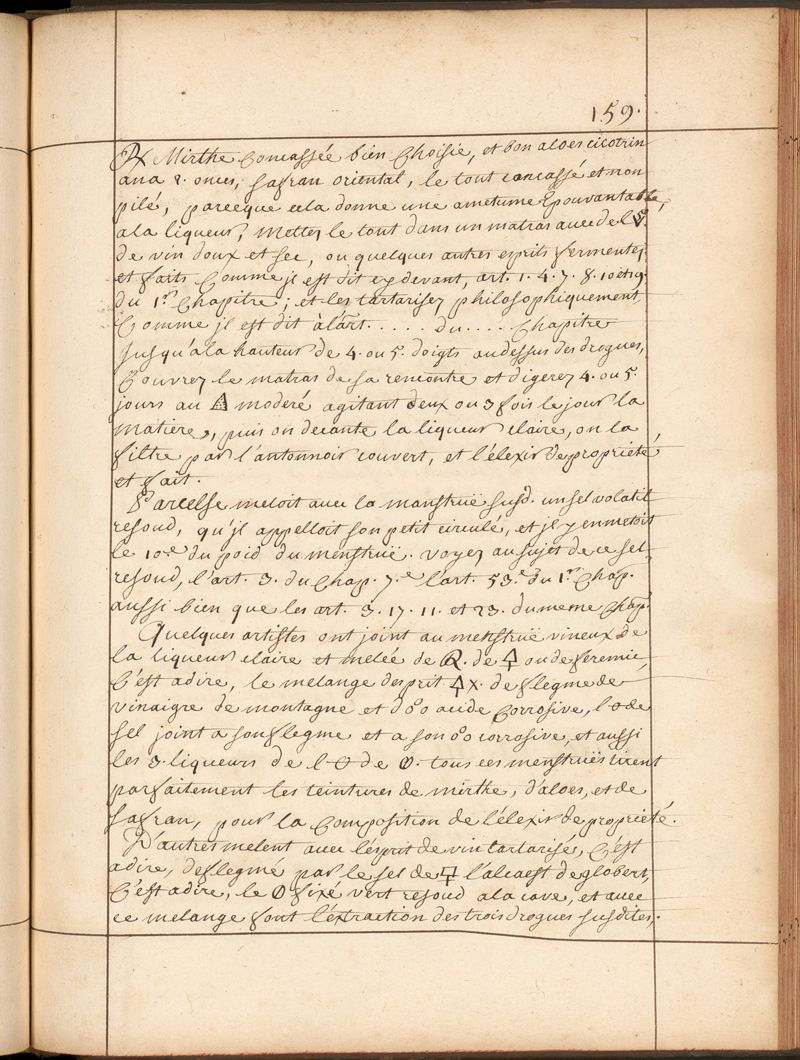 159.
℞ Mirthe Concassée bien Choisie, et bon aloes cicotrin
ana 8. onces, safran oriental, le tout concassé et non
pilé, parceque cela donne une ametume Epouvantable
ala liqueur, mettez le tout dans un matras avec de l'
de vin doux et sec, ou quelques autres esprits fermentez
et faits Comme jl est dit cy devant, art. 1. 4. 7. 8. 10 et 19.
du 1er Chapitre; et les tartarisez philosophiquement,
Comme jl est dit àl'art. . . . . . du . . . . Chapitre
Jusqu'ala hauteur de 4. ou 5. doigts audessus des drogues,
Couvrez le matras de sa rencontre et digerez 4. ou 5.
jours au 🜂 moderé agitant deux ou 3 fois le jour la
matiere, puis on decante la liqueur claire, on la
filtre par l'antonnoir couvert, et l'élexir de propriété
et fait.
Parcelse meloit avec la manstruë susd. un sel volatil
resoud, qu'jl appelloit son petit circulé, et jl y en metoit
le 10e du poid du menstruë. voyez au sujet de ce sel
resoud, l'art. 3. du Chap. 7.e l'art. 53.e du 1er Chap.
aussi bien que les art. 3. 17. 11. et 23. du meme Chap.
Quelques artistes ont joint au menstruë vineux de
la liqueur claire et melée de de 🜍 ou de feremie,
C'est adire, le melange desprit de flegme de
vinaigre de montagne et d'o°o acide Corrosive, l'o de
sel joint a son flegme et a son o°o corrosive, et aussi
les 3. liqueurs de l'🜔 de 🜕. tous ces menstruës tirent
parfaitement les teintures de mirthe, d'aloes, et de
safran, pour la Composition de l'élexir de propriété.
D'autres melent avec l'ésprit de vin tartarisé, C'ést
adire, deflegmé par le sel de l'alcaest de globert,
C'est adire, le fixé vert resoud ala cave, et avec
ce melange font l'éxtraction des trois drogues susdites,